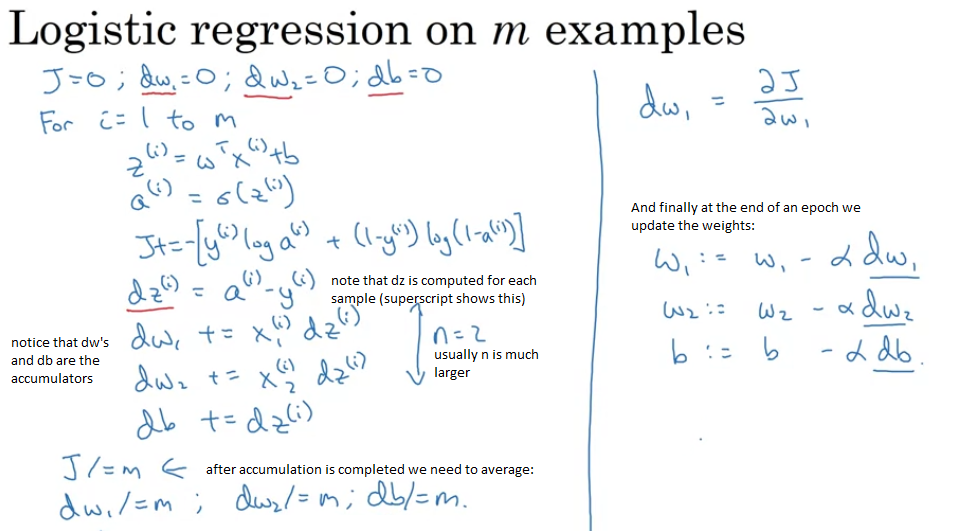 Logistic regression on m examples
J=0 ; dw₁=0 ; dw₂=0 ; db=0
For i=1 to m
z⁽ⁱ⁾ = ωᵀx⁽ⁱ⁾+b
a⁽ⁱ⁾ = σ(z⁽ⁱ⁾)
J+=-[y⁽ⁱ⁾ log a⁽ⁱ⁾ + (1-y⁽ⁱ⁾) log(1-a⁽ⁱ⁾)]
dz⁽ⁱ⁾ = a⁽ⁱ⁾-y⁽ⁱ⁾
note that dz is computed for each
sample (superscript shows this)
notice that dw's
and db are the
accumulators
dw₁ += x₁⁽ⁱ⁾ dz⁽ⁱ⁾
dw₂ += x₂⁽ⁱ⁾ dz⁽ⁱ⁾
db += dz⁽ⁱ⁾
n=2
usually n is much
larger
J/=m ←
after accumulation is completed we need to average:
dw₁/=m ; dw₂/=m ; db/=m.
dw₁ = ∂J/∂w₁
And finally at the end of an epoch we
update the weights:
w₁ := w₁ - α dw₁
w₂ := w₂ - α dw₂
b := b - α db.